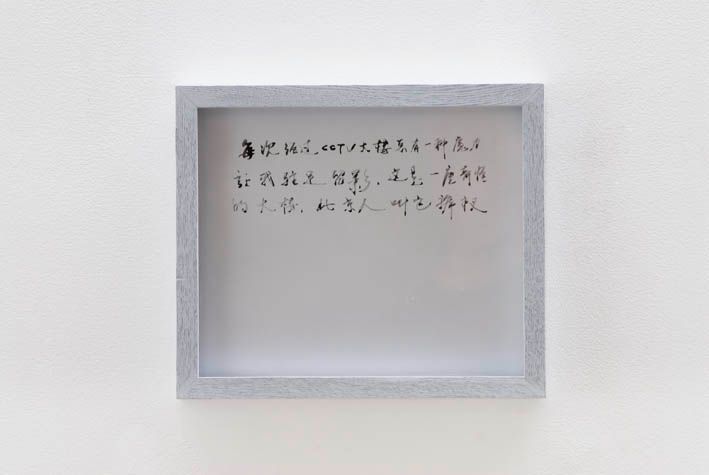 每次经过CCTV大楼总有一种魔力
让我驻足留影，这是一座奇怪
的大楼，北京人叫它裤衩